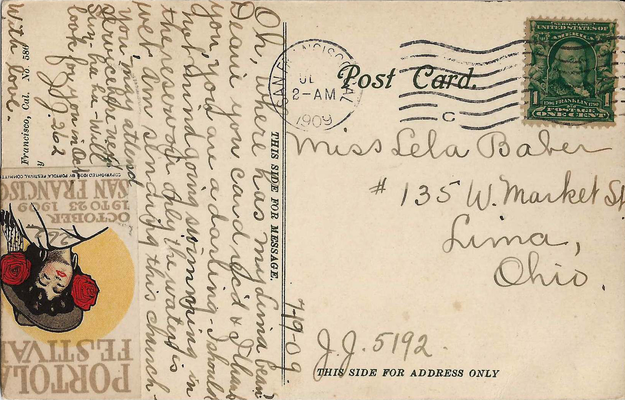 Oh, where has my Lima bean?
Dear icon card rec'd & I thank
you, you are a darling. I should
not mind going swimming in
the reservoir only the water is
wet. Am sending this church -
you may attend
services next
Sun. he he - Will
look for you in
J.J. 262
With love -
Francisco, Cal. No. 586
THIS SIDE FOR MESSAGE.
7-19-09.
COPYRIGHTED 1909 BY PORTOLA FESTIVAL COMMITTEE
OCTOBER
19 TO 23 1909
SAN FRANCISCO
PORTOLA
FESTIVAL
SAN FRANCISCO, CAL.
2-AM
1909
C
Post Card.
UNITED STATES OF
AMERICA
1706 FRANKLIN 1790
POSTAGE
1 ONE CENT 1
Miss Lela Baber
# 135 W. Market St
Lima,
Ohio.
J.J. 5192.
THIS SIDE FOR ADDRESS ONLY